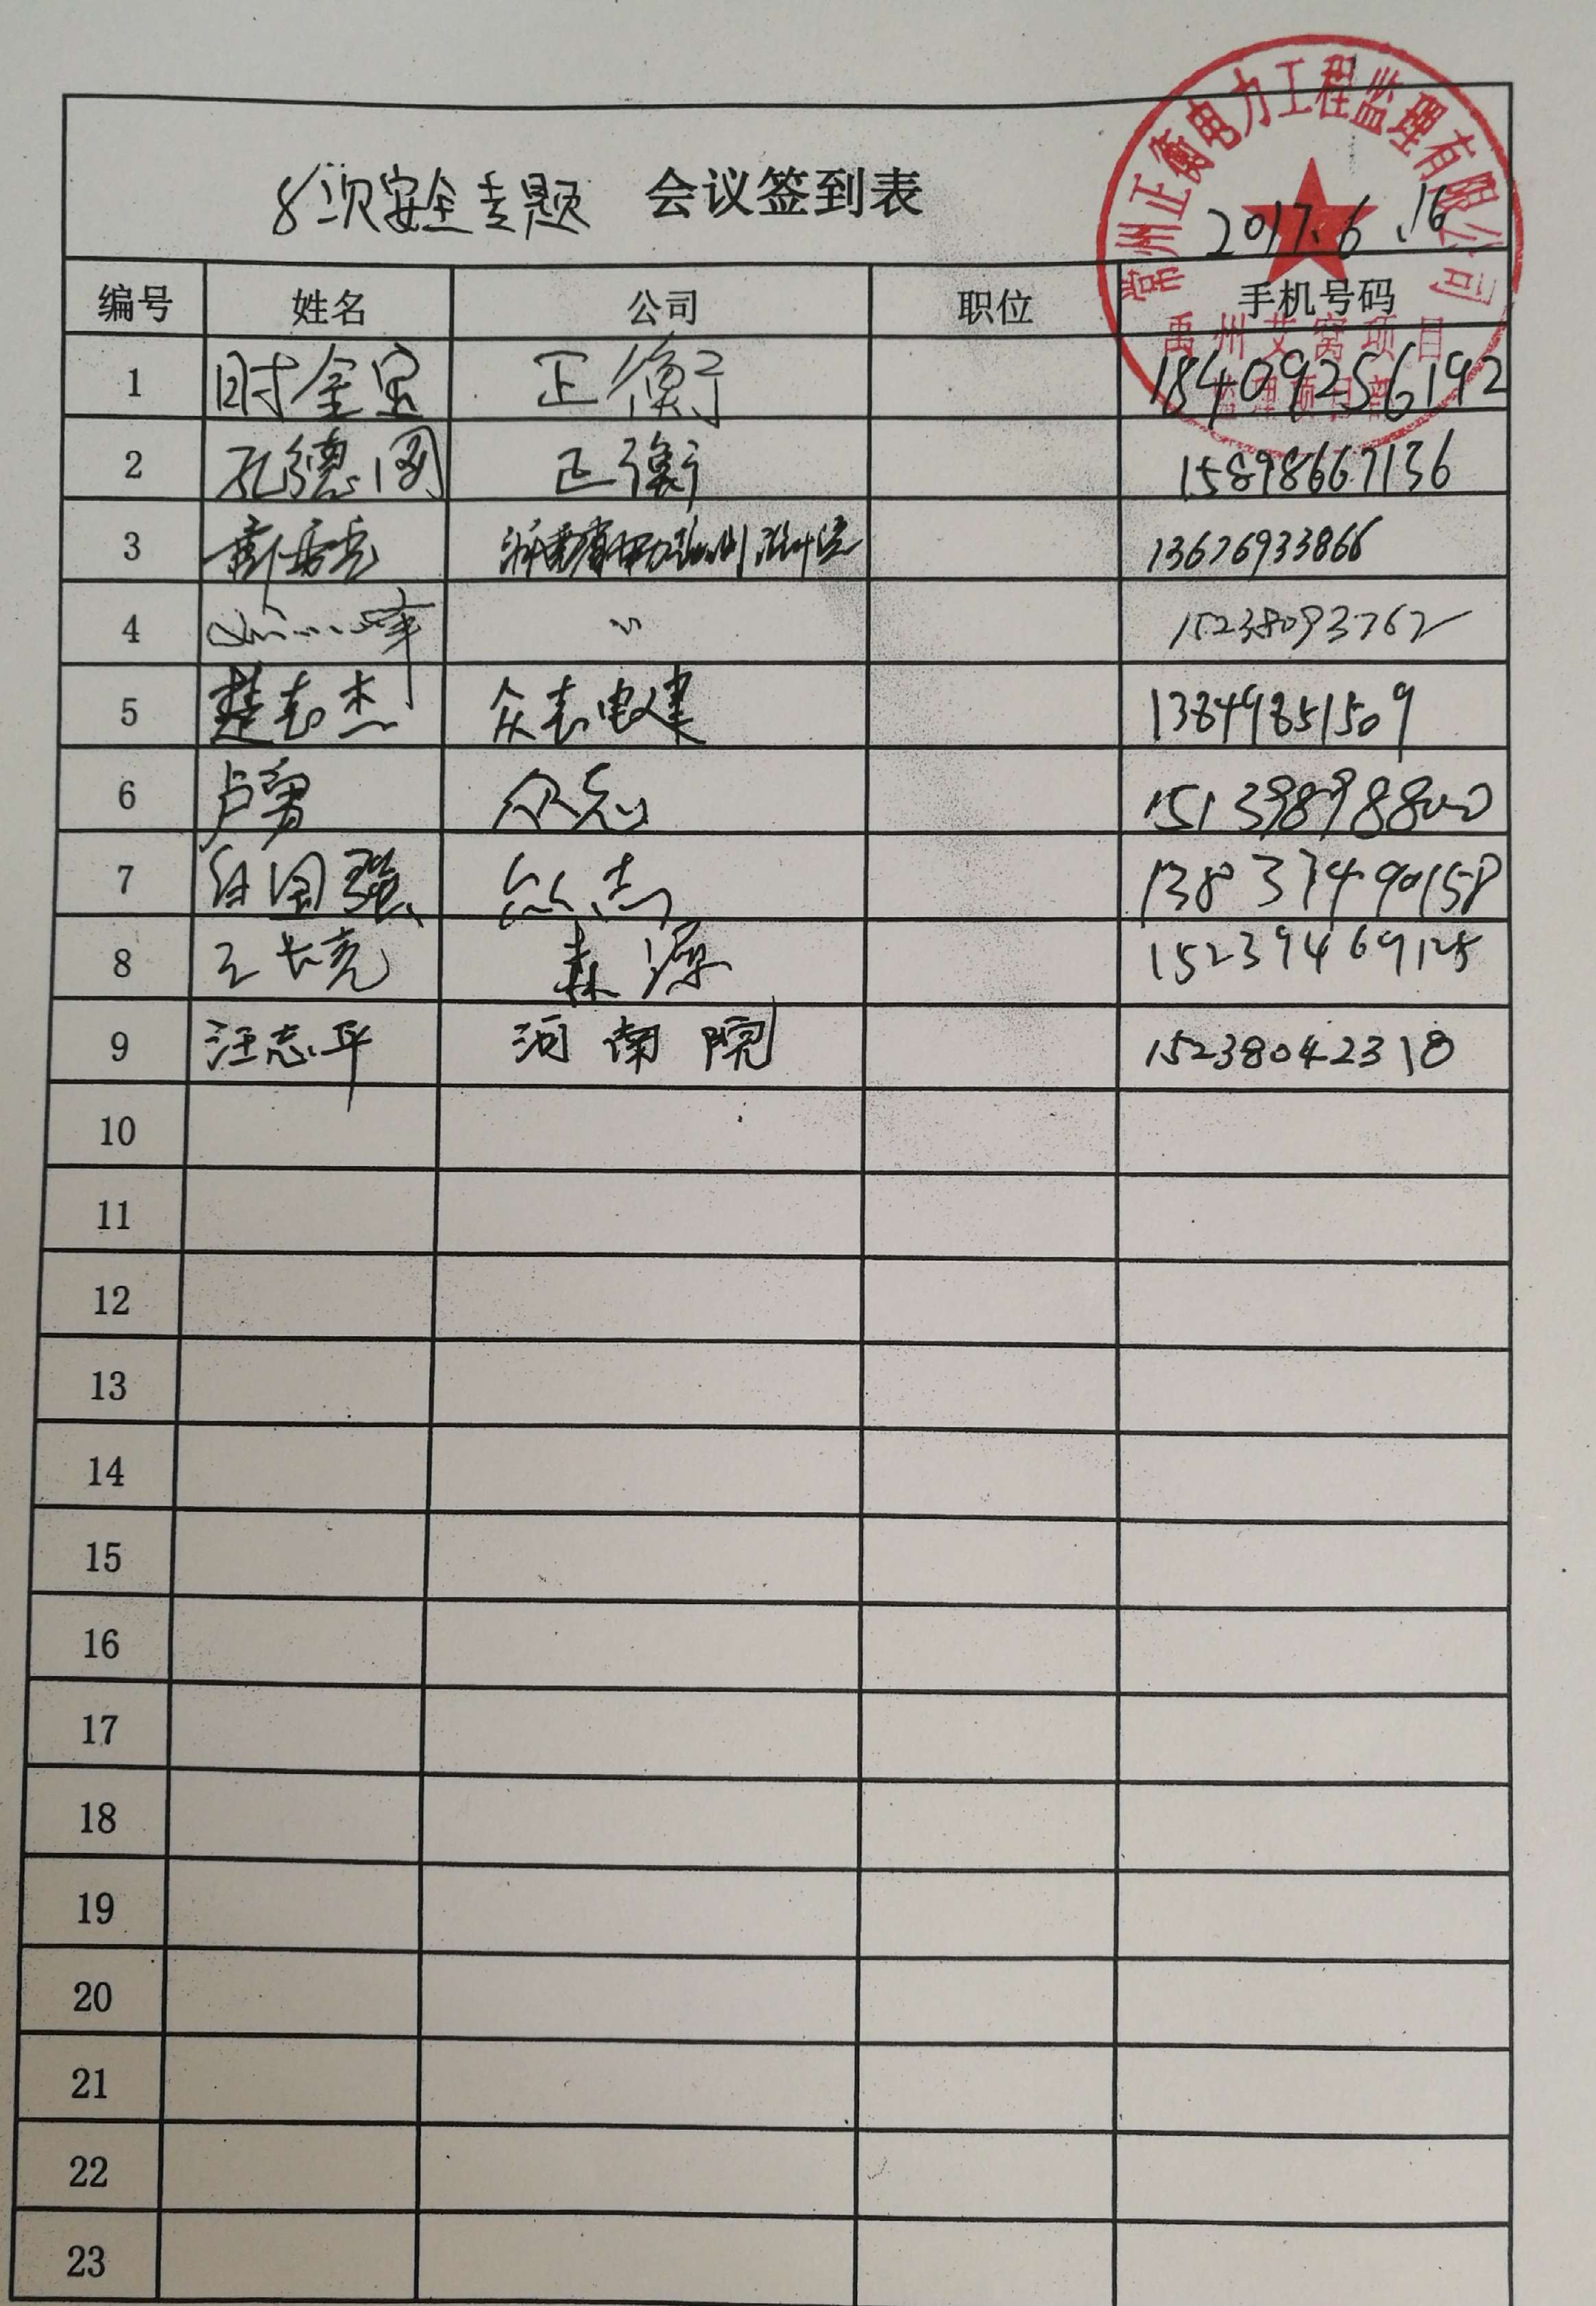 常州正衡电力工程监理有限公司
禹州艾窝项目
监理项目部
8次安全专题 会议签到表
2017.6.16
编号 姓名 公司 职位 手机号码
1 时金宝 正衡 18409256192
2 孔德阁 正衡 15898667136
3 13676933866
4 〃 15238093762
5 楚志杰 众志电建 13849851509
6 卢勇 众志 15139898800
7 任国强 众志 13837490158
8 王长亮 森源 15239469125
9 汪志平 河南院 15238042318
10
11
12
13
14
15
16
17
18
19
20
21
22
23